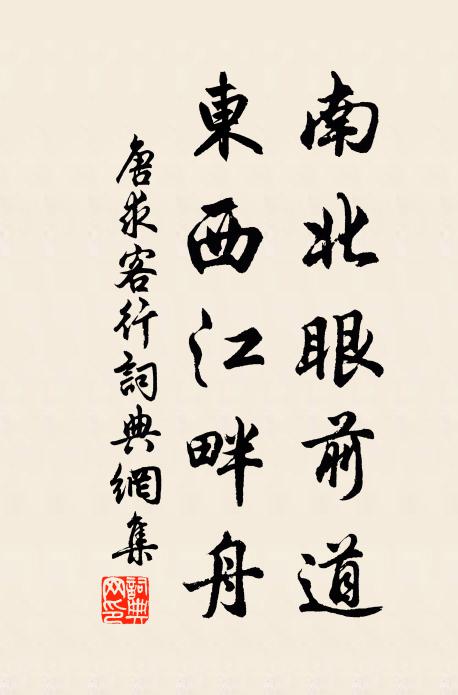 南北眼前道
東西江畔舟
唐求客行詞典網集
詞典網印